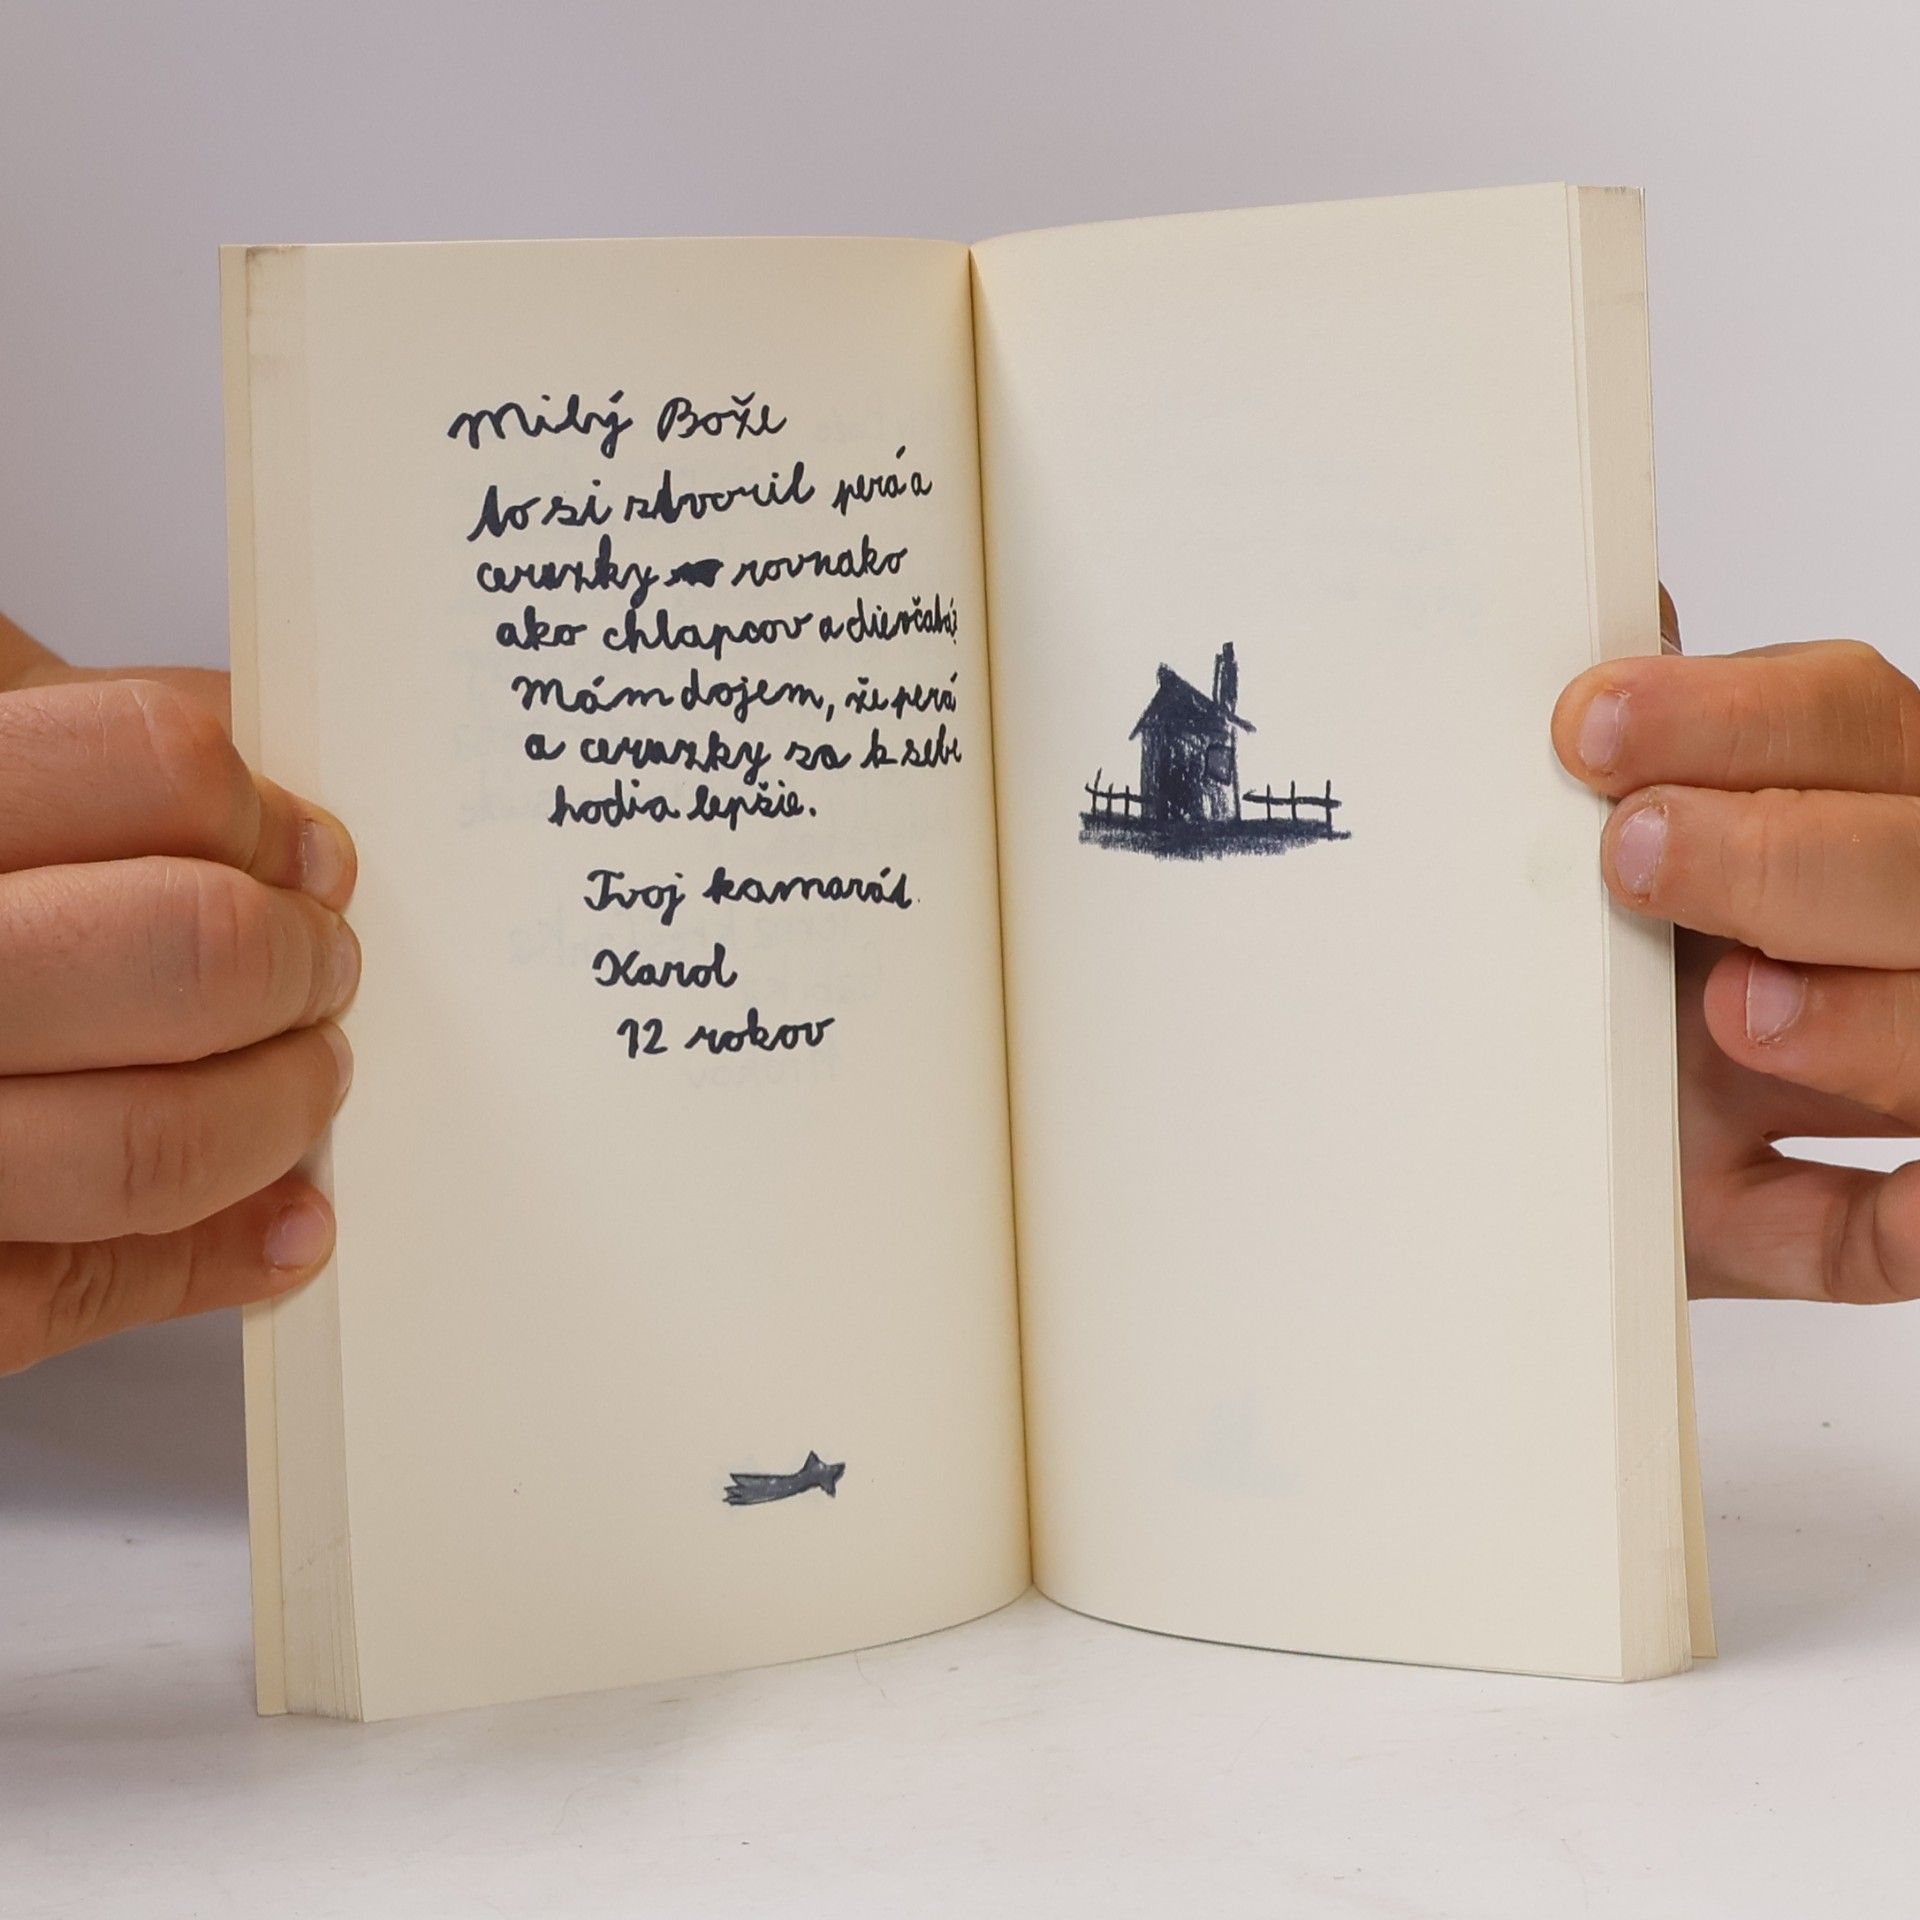 Milý Bože
to si stvoril perá a
ceruzky rovnako
ako chlapcov a dievčatá?
Mám dojem, že perá
a ceruzky sa k sebe
hodia lepšie.
Tvoj kamarát
Karol
12 rokov